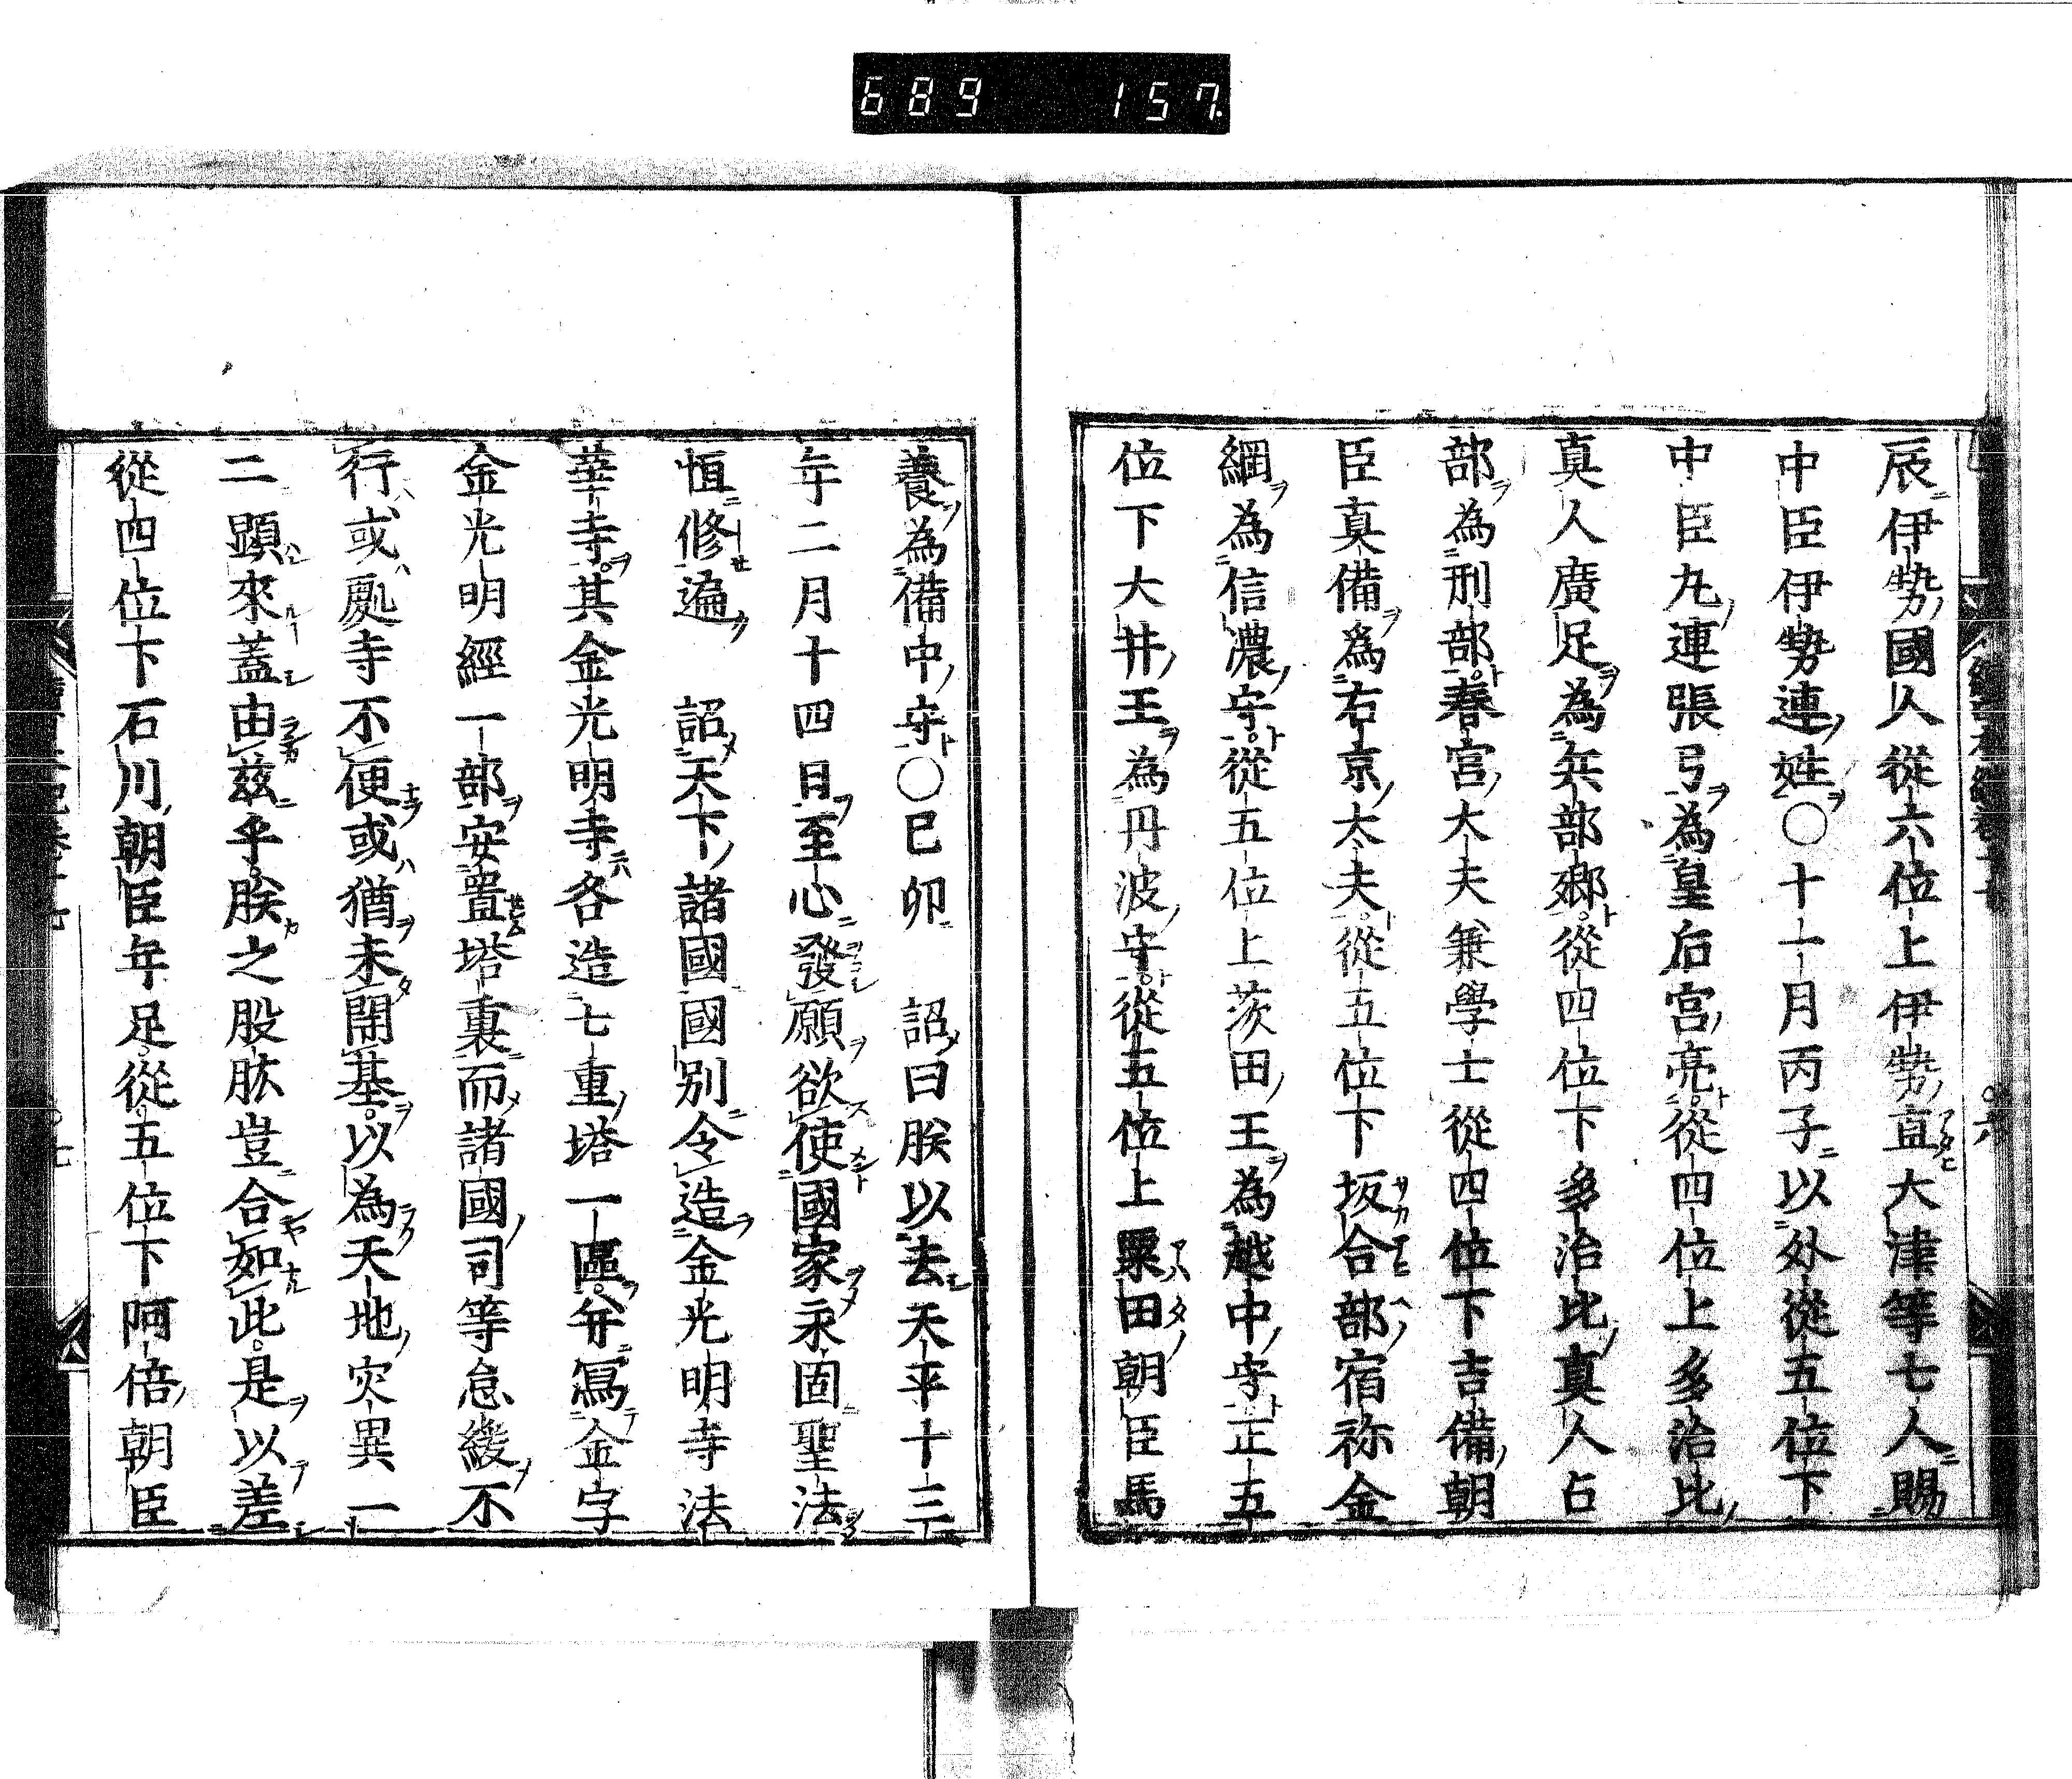 689 157
辰伊勢國人從六位上伊勢直大津等七人賜
中臣伊勢連姓〇十一月丙子以外從五位下
中臣丸連張弓為皇后宮亮從四位上多治比
真人廣足為兵部卿從四位下多治比真人占
部為刑部春宮大夫兼學士從四位下吉備朝
臣真備爲右京大夫從五位下坂合部宿祢金
綱為信濃守從五位上茨田王為越中守正五
位下大井王為丹波守從五位上粟田朝臣馬
養為備中守〇巳卯 詔曰朕以去天平十三
年二月十四日至心發願欲使國家永固聖法
恒修遍 詔天下諸國國別令造金光明寺法
華寺其金光明寺各造七重塔一區并寫金字
金光明經一部安置塔裏而諸國司等怠緩不
行或處寺不便或猶未開基以為天地灾異一
二顯來蓋由茲乎朕之股肱豈合如此是以差
從四位下石川朝臣年足從五位下阿倍朝臣